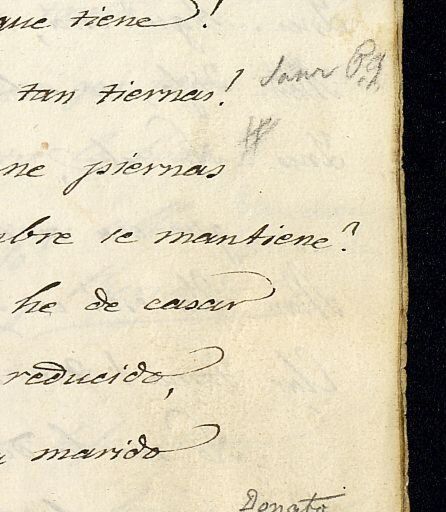 que tiene!
tan tiernas!
ne piernas
mbre se mantiene?
he de casar
reducido,
marido
Donato